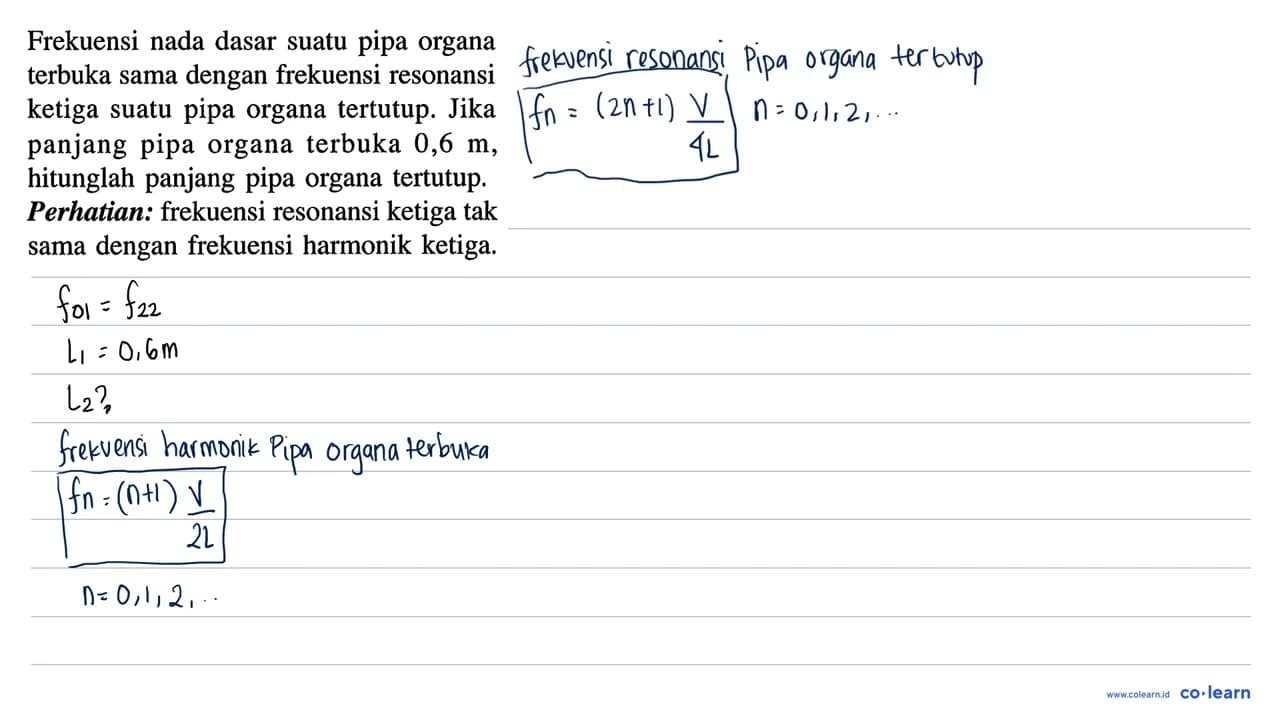 Frekuensi nada dasar suatu pipa organa
terbuka sama dengan frekuensi resonansi
ketiga suatu pipa organa tertutup. Jika
panjang pipa organa terbuka 0,6 m,
hitunglah panjang pipa organa tertutup.
Perhatian: frekuensi resonansi ketiga tak
sama dengan frekuensi harmonik ketiga.
frekuensi resonansi Pipa organa tertutup
fn = (2n+1) V n = 0,1,2,...
4L
f01 = f22
L1 = 0,6m
L2?
frekuensi harmonik Pipa organa terbuka
fn = (n+1) V
2L
n = 0,1,2,..
www.colearn.id co·learn